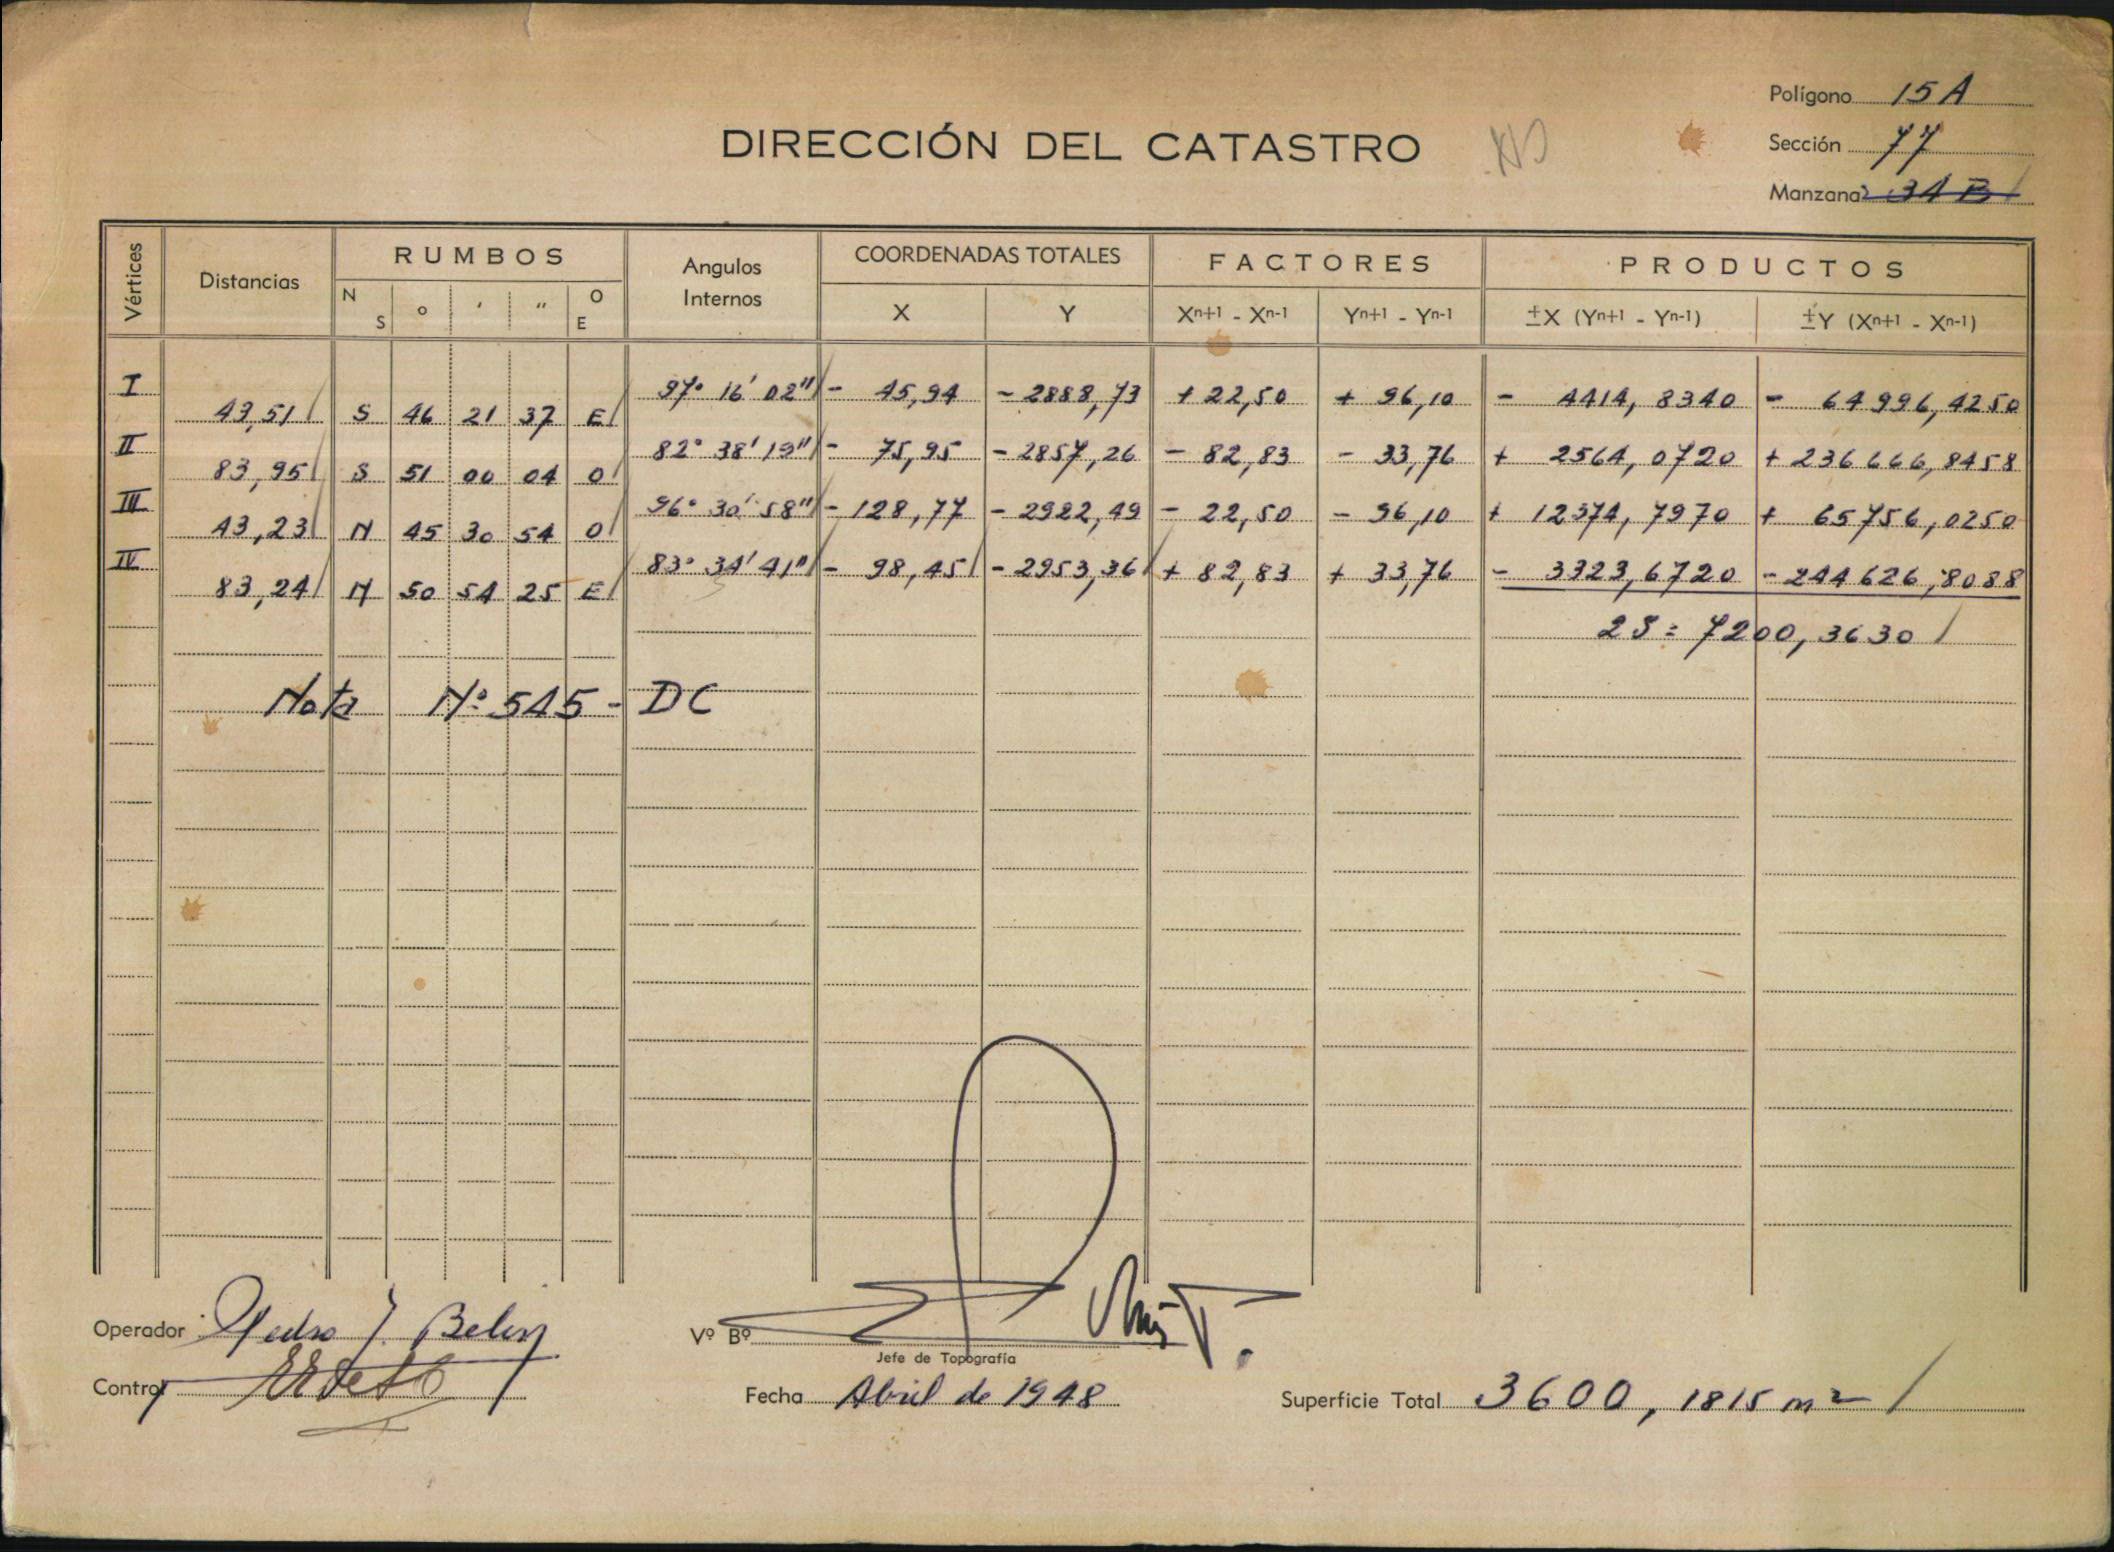 Polígono 15 A
DIRECCIÓN DEL CATASTRO
Sección 77
Manzana 34 B
Vértices Distancias RUMBOS N S o ' " O E Angulos Internos COORDENADAS TOTALES X Y FACTORES Xn+1 - Xn-1 Yn+1 - Yn-1 PRODUCTOS ±X (Yn+1 - Yn-1) ±Y (Xn+1 - Xn-1)
I 97° 16' 02" - 45,94 - 2888,73 + 22,50 + 96,10 - 4414,8340 - 64996,4250
43,51 S 46 21 37 E
II 82° 38' 19" - 75,95 - 2857,26 - 82,83 - 33,76 + 2564,0720 + 236666,8458
83,95 S 51 00 04 O
III 96° 30' 58" - 128,77 - 2922,49 - 22,50 - 96,10 + 12374,7970 + 65756,0250
43,23 N 45 30 54 O
IV 83° 34' 41" - 98,45 - 2953,36 + 82,83 + 33,76 - 3323,6720 - 244626,8088
83,24 N 50 54 25 E
2S = 7200,3630
Nota Nº 545 - DC
Operador Pedro J. Belin
Vº Bº
Jefe de Topografía
Control
Fecha Abril de 1948
Superficie Total 3600,1815 m2